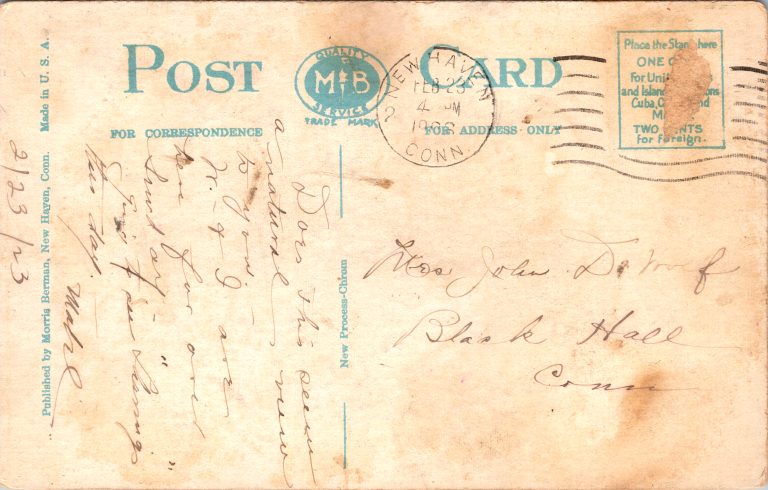 POST CARD
QUALITY
M B
SERVICE
TRADE MARK
FOR CORRESPONDENCE
FOR ADDRESS ONLY
NEW HAVEN
FEB 23
4 PM
2
CONN.
Place the Stamp here
ONE
For
and Island
Cuba,
TWO CENTS
for foreign.
Made in U. S. A.
Published by Morris Berman, New Haven, Conn.
New Process-Chrom
2/23/23
Does this seem
a natural view
to you -
W. & I are
here for over
Sunday -
"
this day.
Mabel
Mrs John
Black Hall
Conn